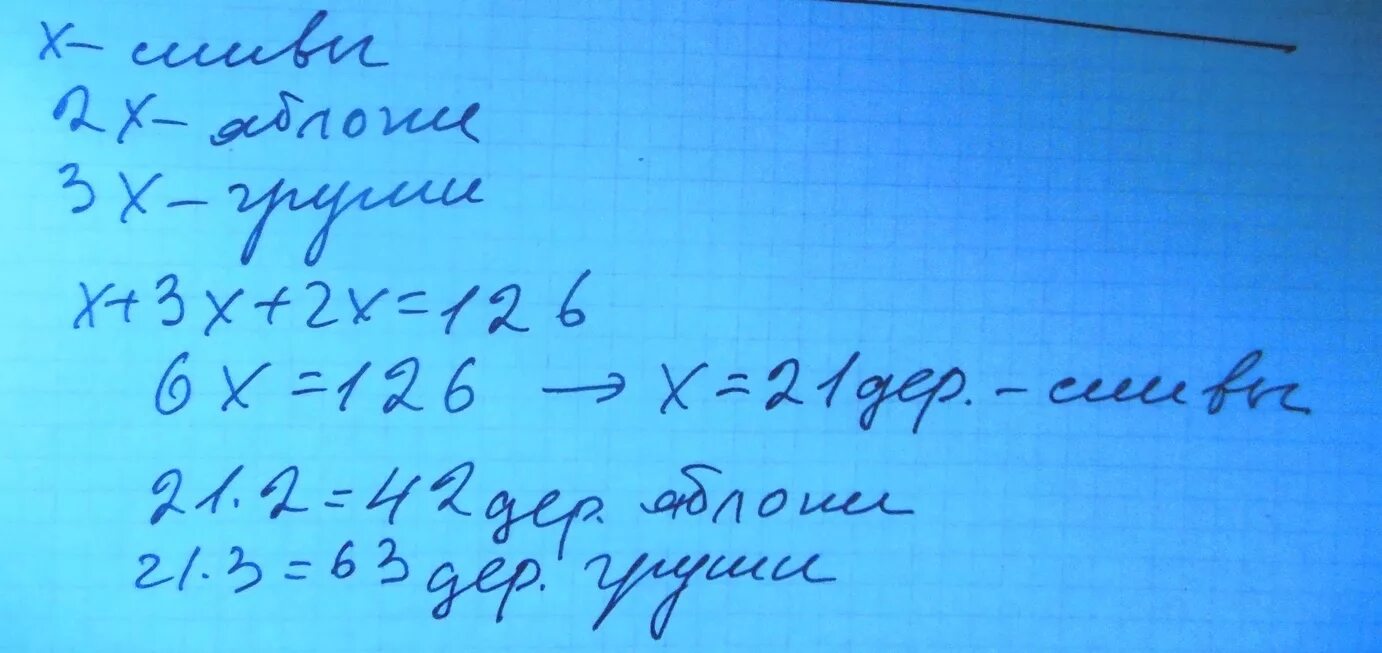 x – сливы
2x – яблони
3x – груши
x+3x+2x=126
6x=126 → x=21дер. – сливы
21·2=42дер. яблони
21·3=63дер. груши